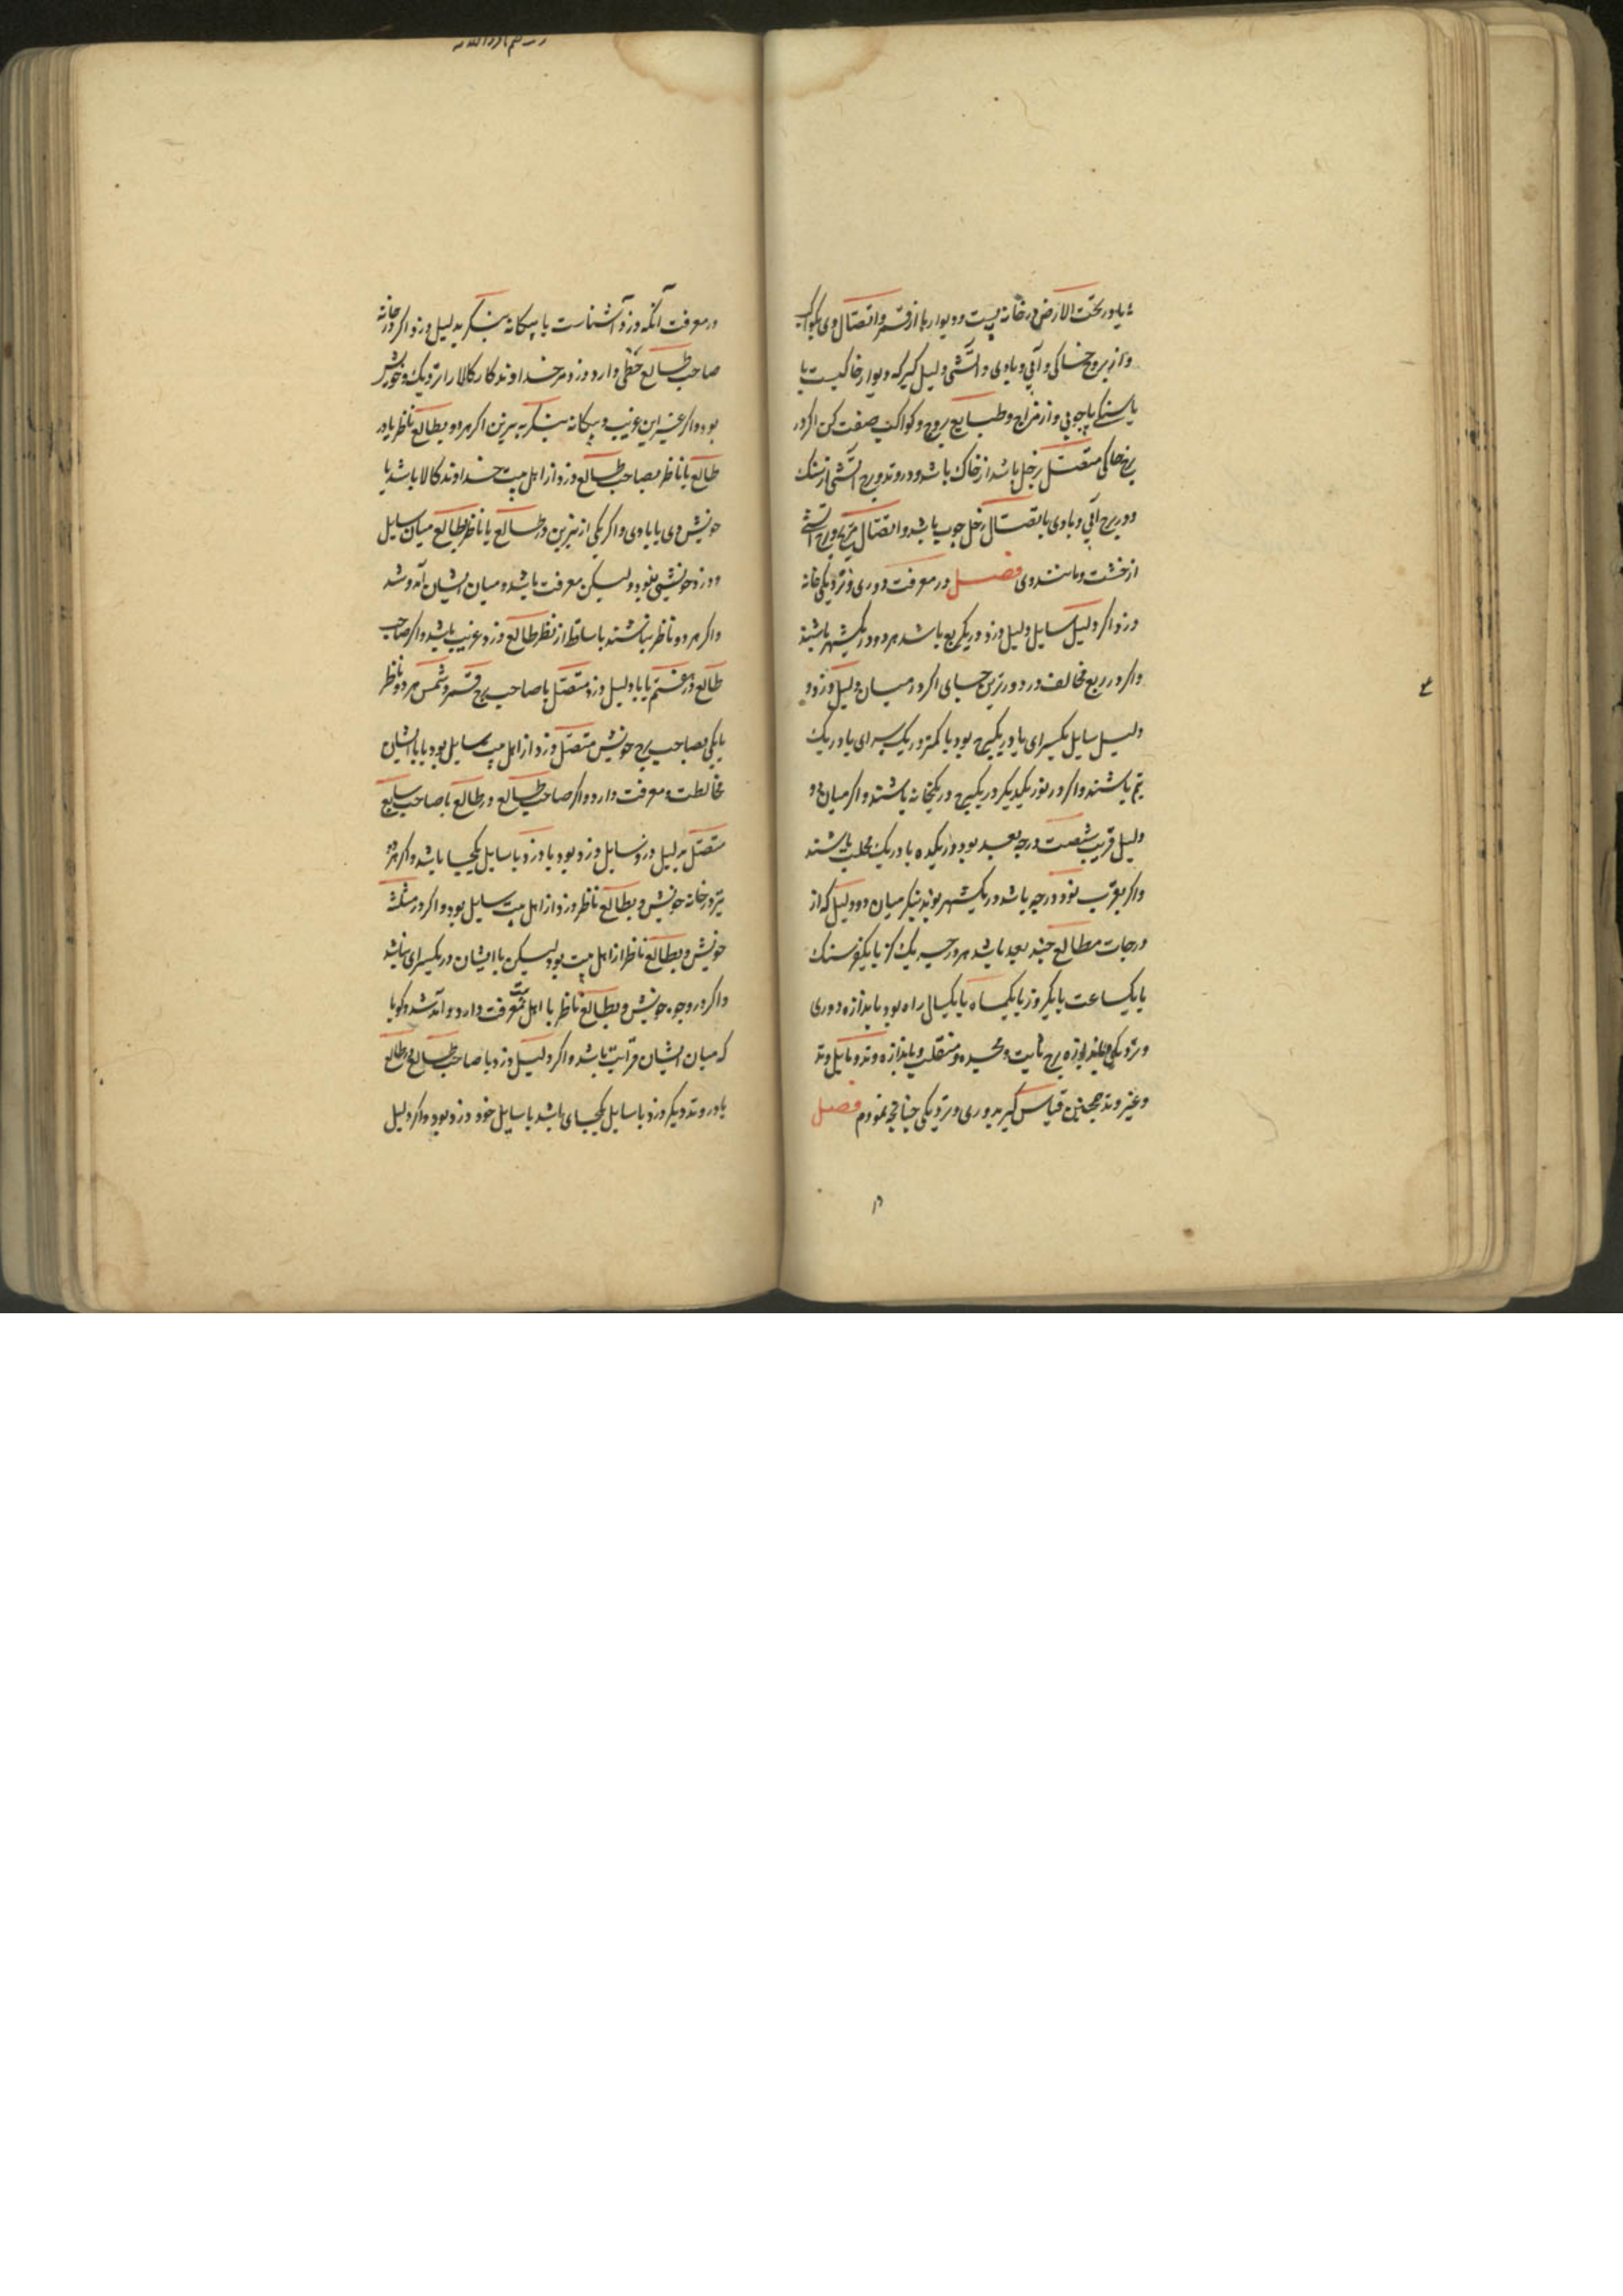 یا در تحت الارض در خانه پست و دیوارها از قمر و اتصال وی بکواکب
و از بروج خاکی و آبی و بادی و آتشی دلیل گیر که دیوار خاکیست یا
یا سنگی یا چوبی و از مزاج و طبایع بروج و کواکب صفت کن اگر در
برج خاکی متصل بزحل باشد از خاک باشد و در وتد و برج آتشی از سنک
و در برج آبی و بادی با تصال زحل چوب باشد و اتصال مریخ و برج آتشی
از خشت و مانند وی فصل در معرفت دوری و نزدیکی خانه
دزد اگر دلیل سایل و دلیل دزد در یکربع باشد هر دو در یکشهر باشند
و اگر در ربع مخالف در دورترین جای اگر در میان دلیل دزد و
دلیل سایل یکسرای یا در یکبرج بود یا کمتر در یک سرای یا در یک
تیم باشند و اگر در نور یکدیگر در یکبرج در یکخانه باشند و اگر میان دو
دلیل قریب شصت درجه بعد بود در یکده یا در یک محلت باشند
و اگر بقرب نود درجه باشد در یکشهر بوند بنگر میان دو دلیل که از
درجات مطالع چند بعد باشد هر درجه یک گز یا یکفرسنک
یا یکساعت یا یکروز یا یکماه یا یکسال راه بود باندازه دوری
و نزدیکی و باندازه برج ثابت و مجسده و منقلب و باندازه وتد و مایل وتد
و غیر وتد همچنین قیاس گیر بدوری و نزدیکی چنانچه نمودم فصل
در معرفت آنکه دزد آشناست یا بیکانه بنکر بدلیل دزد اگر در خانه
صاحب طالع حظی دارد دزد مر خداوند کار کالا را نزدیک و خویش
بود و اگر غیر این غریب و بیکانه بنکر به نیرین اگر هر دو بطالع ناظر یا در
طالع یا ناظر بصاحب طالع دزد از اهل بیت خداوند کالا باشد یا
خویش وی یا با وی و اگر یکی از نیرین در طالع یا ناظر بطالع میان سایل
و دزد خویشی نبود ولیکن معرفت باشد و میان ایشان آمد و شد
و اگر هر دو ناظر نباشند یا ساقط از نظر طالع دزد غریب باشد و اگر صاحب
طالع در هفتم یابا دلیل دزد متصل یا صاحب برج قمر و شمس هر دو ناظر
یا یکی بصاحب برج خویش متصل دزد از اهل بیت سایل بود یا با ایشان
مخالطت و معرفت دارد و اگر صاحب طالع در طالع با صاحب سابع
متصل بدلیل دزد سایل دزد بود یا دزد با سایل یکجا باشد و اگر هر دو
نیر در خانه خویش و بطالع ناظر دزد از اهل بیت سایل بود و اگر در مثلثه
خویش و بطالع ناظر از اهل بیت بود لیکن با ایشان در یکسرای نباشد
و اگر در وجوه خویش و بطالع ناظر با اهل بیت معرفت دارد و آمد شد و گویا
که میان ایشان قرابت باشد و اگر دلیل دزد با صاحب طالع در طالع
یا در وتد دیکر دزد با سایل یکجای باشد یا سایل خود دزد بود و اگر دلیل